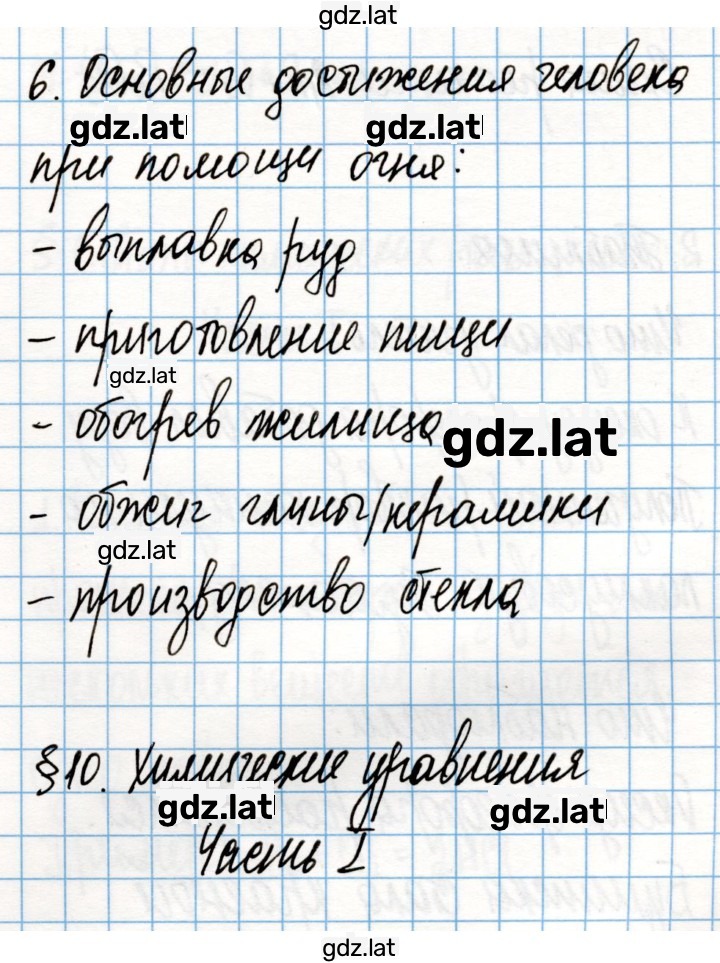 gdz.lat
6. Основные достижения человека
gdz.lat gdz.lat
при помощи огня:
- выплавка руд
- приготовление пищи
gdz.lat
- обогрев жилища
gdz.lat
- обжиг глины/керамики
gdz.lat
- производство стекла
§10. Химические уравнения
gdz.lat gdz.lat
Часть I
gdz.lat